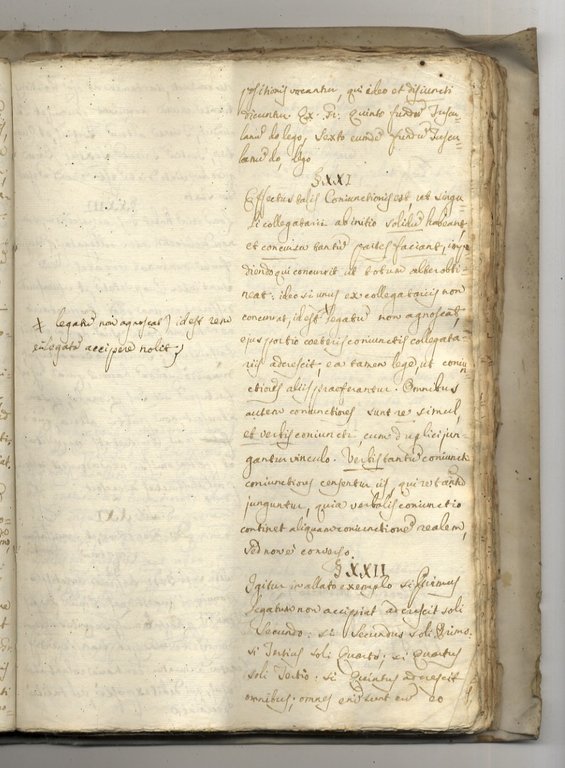 positionis vocantur, qui ideo et disiuncti
dicuntur. Ex. Gr. Quinto fundū Tuscu=
lanū do lego, Sexto eundē fundū Tuscu=
lanū do, lego
§ XXI
Effectus talis Coniunctionis est, ut singu
li collegatarii ab initio solidū habeant,
et concursu tantū partes faciant,
diendo qui concurrit ut totum alter obti
neat: ideo si unus ex collegatariis non
concurrat, id est ‡ legatū non agnoscat,
ejus portio coeteris coniunctis collegata-
riis adcrescit, ea tamen lege, ut coniun
ctiores aliis praeferantur. Omnibus
autem coniunctiores sunt re simul,
et verbis coniuncti, cum duplici jun
gantur vinculo. Verbis tantū coniuncti
coniunctiores censentur iis, qui re tantū
junguntur, quia verbalis coniunctio
continet aliquam coniunctionē realem,
sed non e converso.
§ XXII
Igitur in allato exemplo si Primus
legatum non accipiat adcrescit soli
Secundo: si Secundus soli Primo.
si Tertius soli Quarto; si Quartus
soli Tertio: si Quintus adcrescit
omnibus; omnes enī sunt cū eo
‡ legatū non agnoscat) id est rem
legatā accipere nolit)